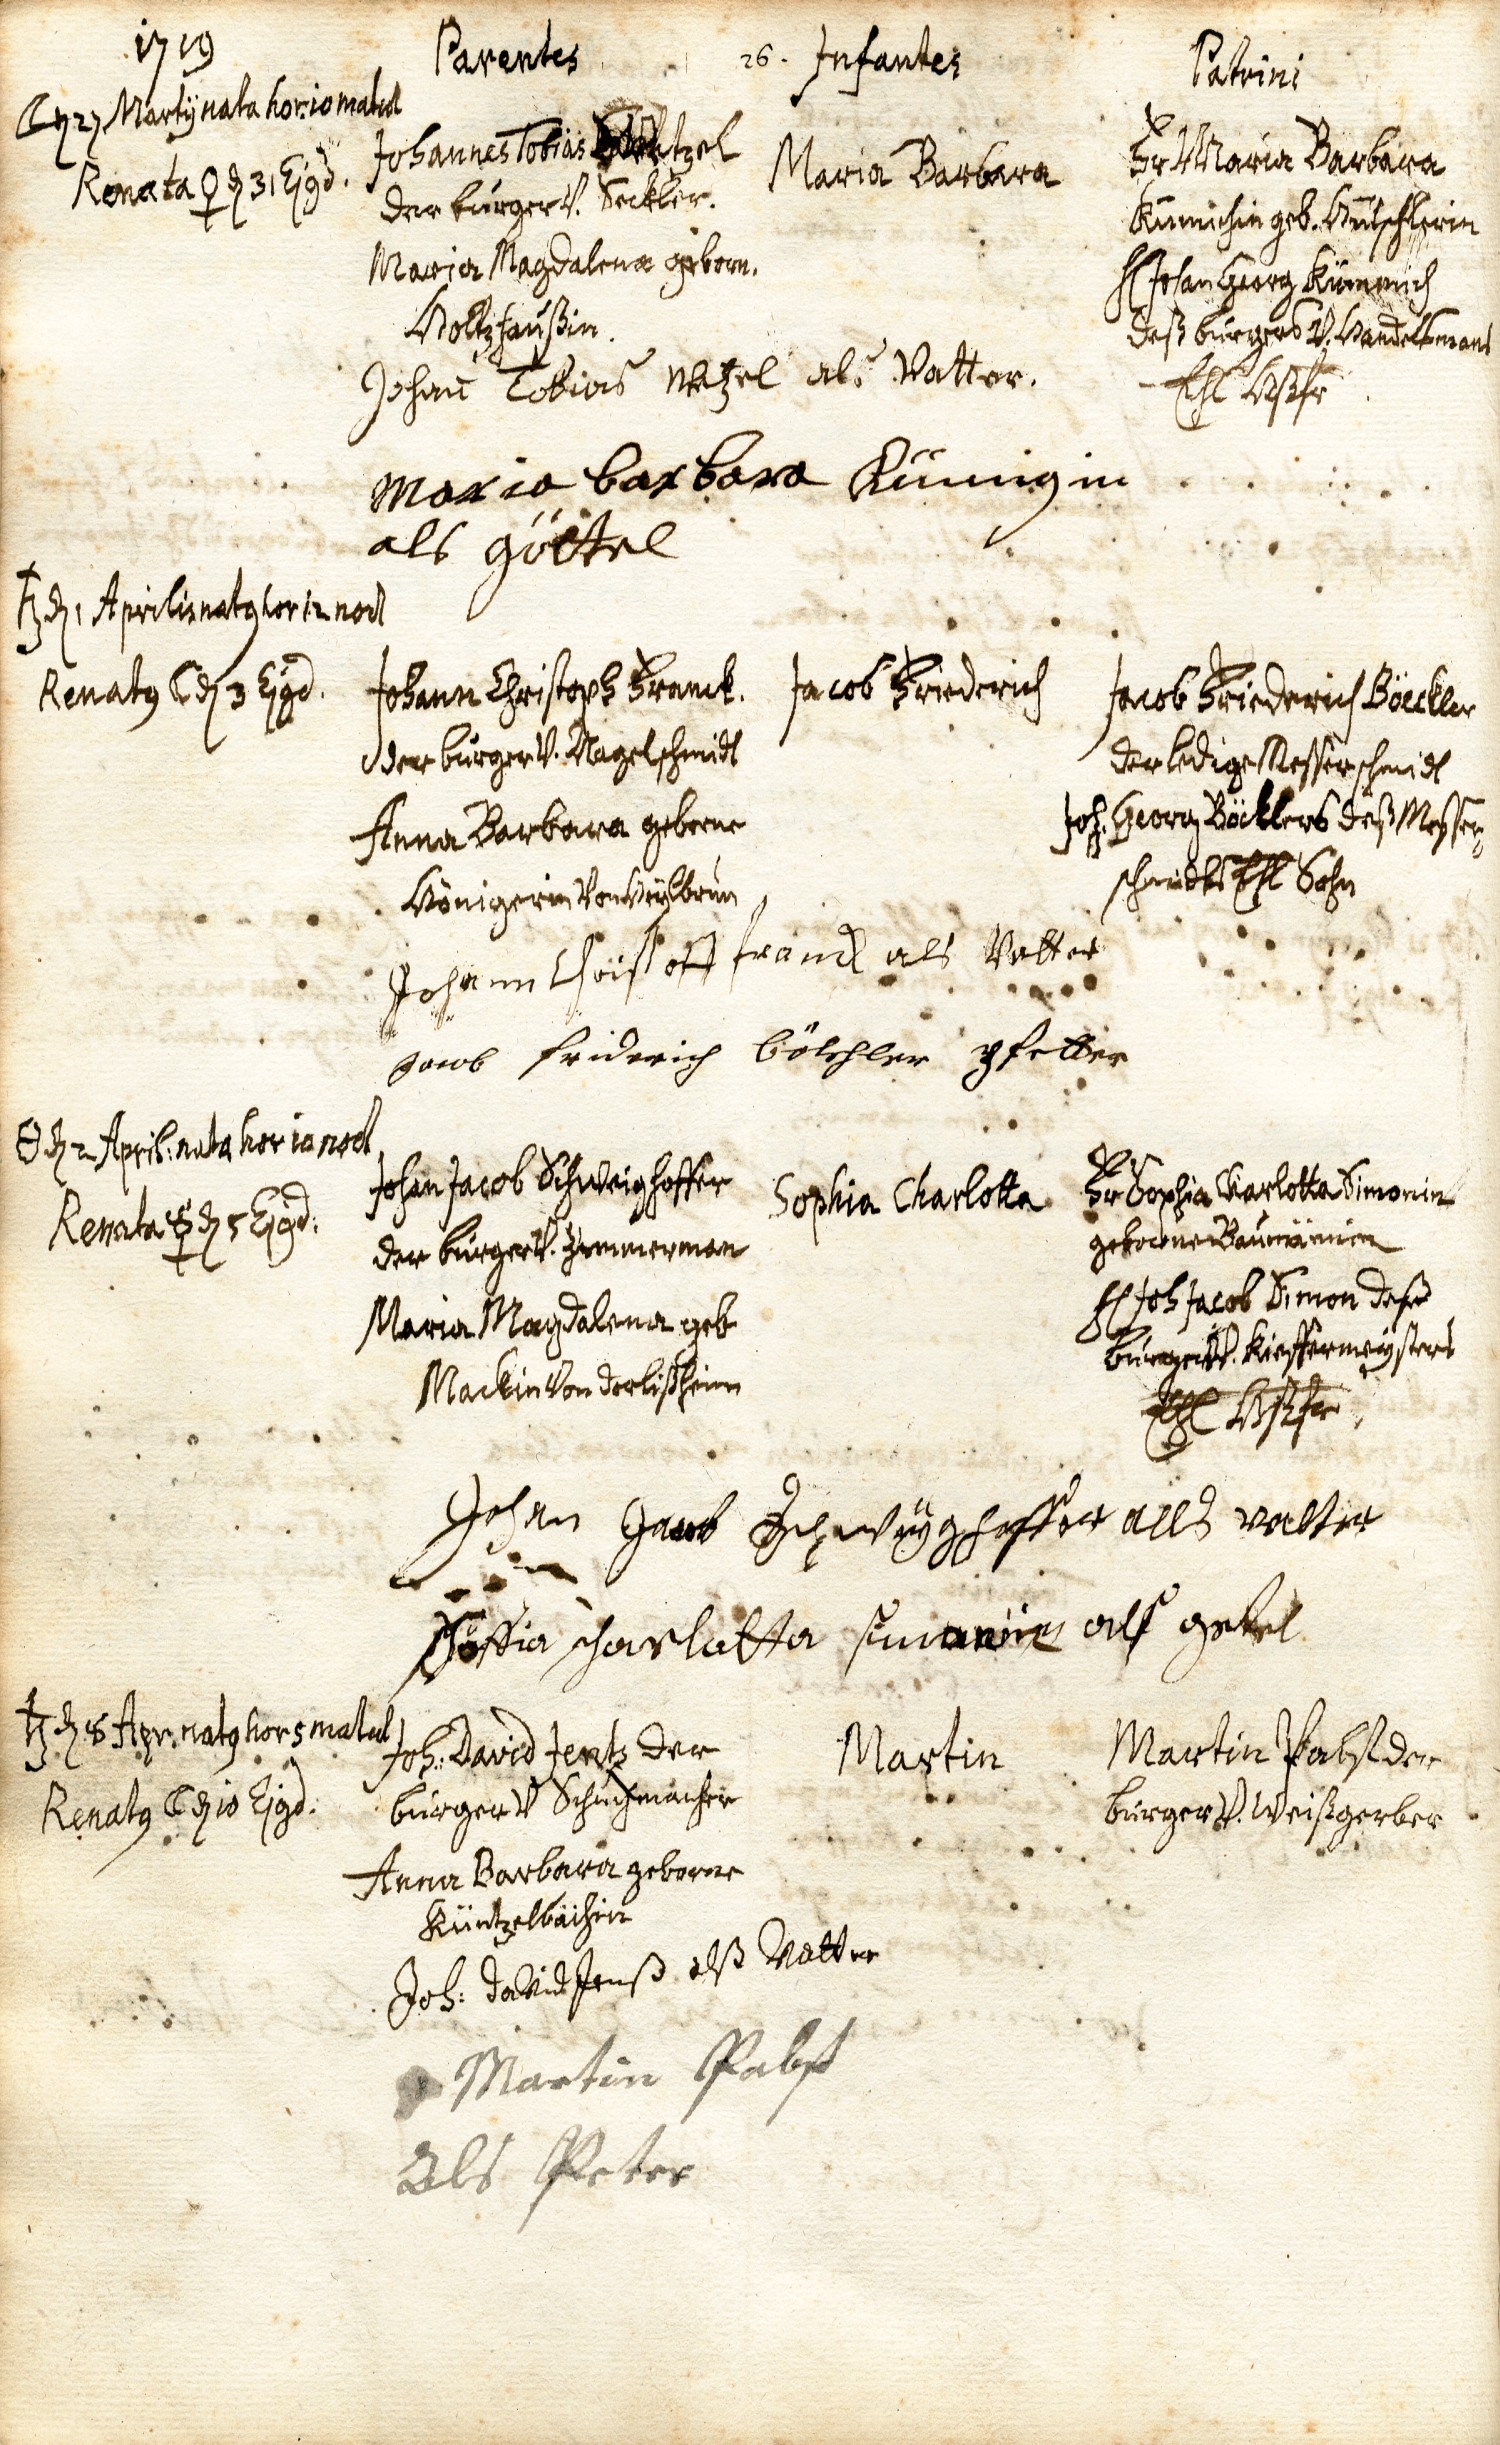 1719
Parentes
26.
Infantes
Patrini
☾ d 27 Martij nata hor: 10 matut
Renata ♀ d 31 Ejsd.
Johannes Tobias Wetzel
der burger V. Seckler.
Maria Magdalena geborn.
Holtzhaußin.
Maria Barbara
Fr Maria Barbara
geb.
H Johan Georg Kümmich
deß burgers V. Handelsmans
Ehl Haßfr
Johan Tobias Wetzel als Vatter.
Maria barbara Kümigin
als göttel
♄ d 1 Aprilis natg hor 12 noct
Renatg ☾ d 3 Ejsd.
Johann Christoph Franck.
der burger V. Nagelschmidt
Anna Barbara geborne
Königerin von
Jacob Friederich
Jacob Friederich Böeckler
der ledige Messerschmidt
Joh. Georg Böcklers deß Messer
schmidts Ehl Sohn
Johann Christoff franck als Vatter
Jacob friderich böckhler pfetter
☉ d 2 April: nata hor 10 noct
Renata ☿ d 5 Ejsd:
Johan Jacob Schweighoffer
der burger V. Zimmerman
Maria Magdalena geb
Mackin von Dorlißheim
Sophia Charlotta
Fr Sophia Charlotta Simonin
geborne Baumännin
H Joh Jacob Simon deß
burgers V. Kieffermeysters
Ehl Haßfr.
Johan Jacob Schweyghoffer alls vatter
Soffia scharlatta simanin alß getel
♄ d 8 Apr. natg hor 5 matut
Renatg ☾ d 10 Ejsd:
Joh: David Jentz der
burger V Schuhmacher
Anna Barbara geborne
Küntzelbächin
Martin
Martin Pabst der
burger V. Weißgerber
Joh: david Jenß alß Vatter
Martin Pabst
Als Peter